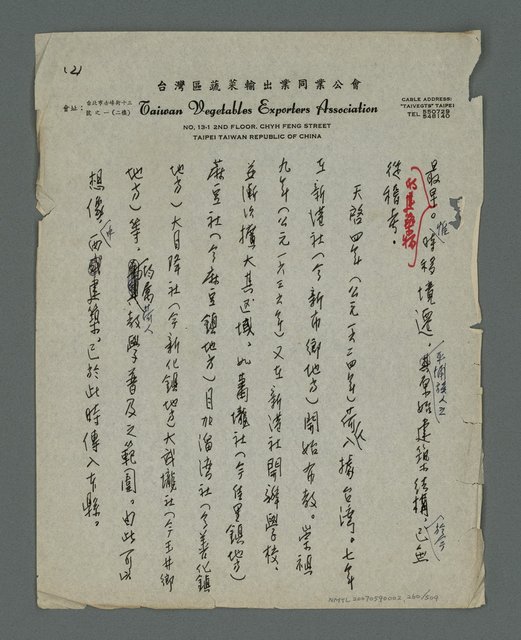 (2)
台灣區蔬菜輸出業同業公會
會址：台北市赤峰街十三號之一（二樓）
Taiwan Vegetables Exporters Association
CABLE ADDRESS:
"TAIVEGTS" TAIPEI
TEL 550729
546140
NO. 13-1 2ND FLOOR, CHYH FENG STREET
TAIPEI TAIWAN REPUBLIC OF CHINA
最早的建築物，惟時移境遷，平埔族人之原始建築結構，於今已無
從稽考。
天啓四年（公元一六二四年）荷人據台灣。七年
在新港社（今新市鄉地方）開始布教。崇禎
九年（公元一六三六年）又在新港社開辦學校，
並漸次擴大其區域。如蕭壠社（今佳里鎮地方）
麻豆社（今麻豆鎮地方）目加溜灣社（今善化鎮
地方）大目降社（今新化鎮地方）大武壠社（今玉井鄉
地方）等，均屬荷人教學普及之範圍。由此可以
想像，西式建築，已於此時傳入本縣。
NMTL 20070590002 260/509